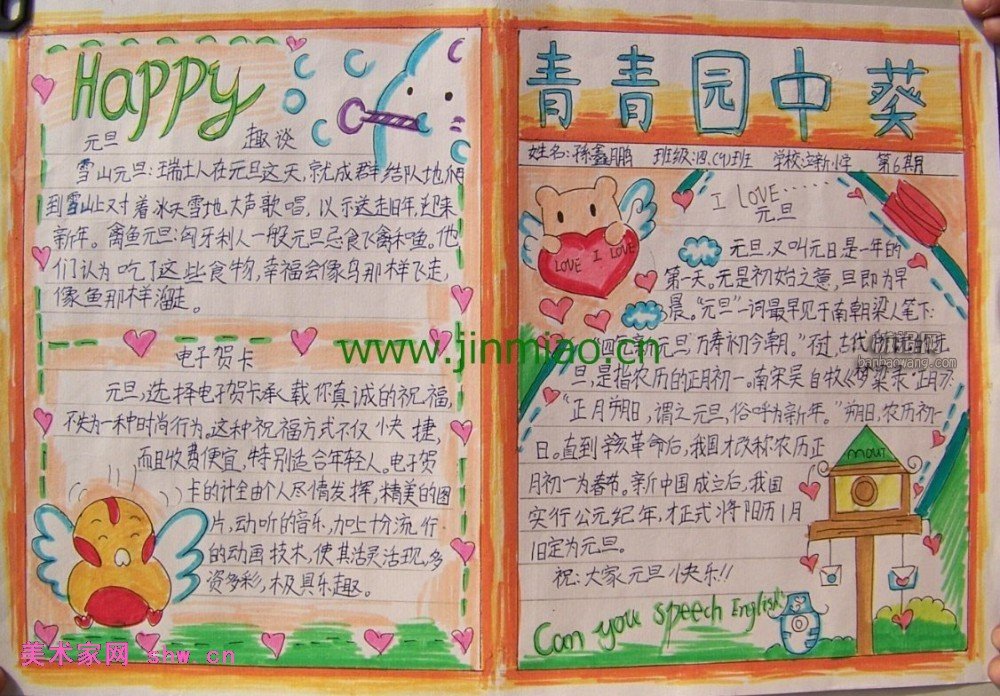 Happy
元旦 趣谈
雪山元旦:瑞士人在元旦这天,就成群结队地爬
到雪山上对着冰天雪地大声歌唱,以示送走旧年,迎来
新年。禽鱼元旦:匈牙利人一般元旦忌食飞禽和鱼。他
们认为吃了这些食物,幸福会像鸟那样飞走,
像鱼那样溜走。
电子贺卡
元旦,选择电子贺卡承载你真诚的祝福,
不失为一种时尚行为。这种祝福方式不仅快捷,
而且收费便宜,特别适合年轻人。电子贺
卡的计全由个人尽情发挥,精美的图
片,动听的音乐,加上十分流行
的动画技术,使其活灵活现,多
姿多彩,极具乐趣。
青青园中葵
姓名:孫鑫鹏 班级:四.(4)班 学校:立新小学 第6期
I LOVE......
元旦
LOVE I LOVE
元旦,又叫元日是一年的
第一天。元是初始之意,旦即为早
晨。“元旦”一词最早见于南朝梁人笔下:
“四气新元旦 万寿初今朝。”不过,古代所说的元
旦,是指农历的正月初一。南宋吴自牧《梦粱录》正月:
“正月朔日,谓之元旦,俗呼为新年。”朔日,农历初一
日。直到辛亥革命后,我国才改称农历正
月初一为春节。新中国成立后,我国
实行公元纪年,才正式将阳历1月
1日定为元旦。
祝:大家元旦快乐!!
Can you speech English
www.jinmiao.cn
banbaowang.com
美术家网 shw.cn